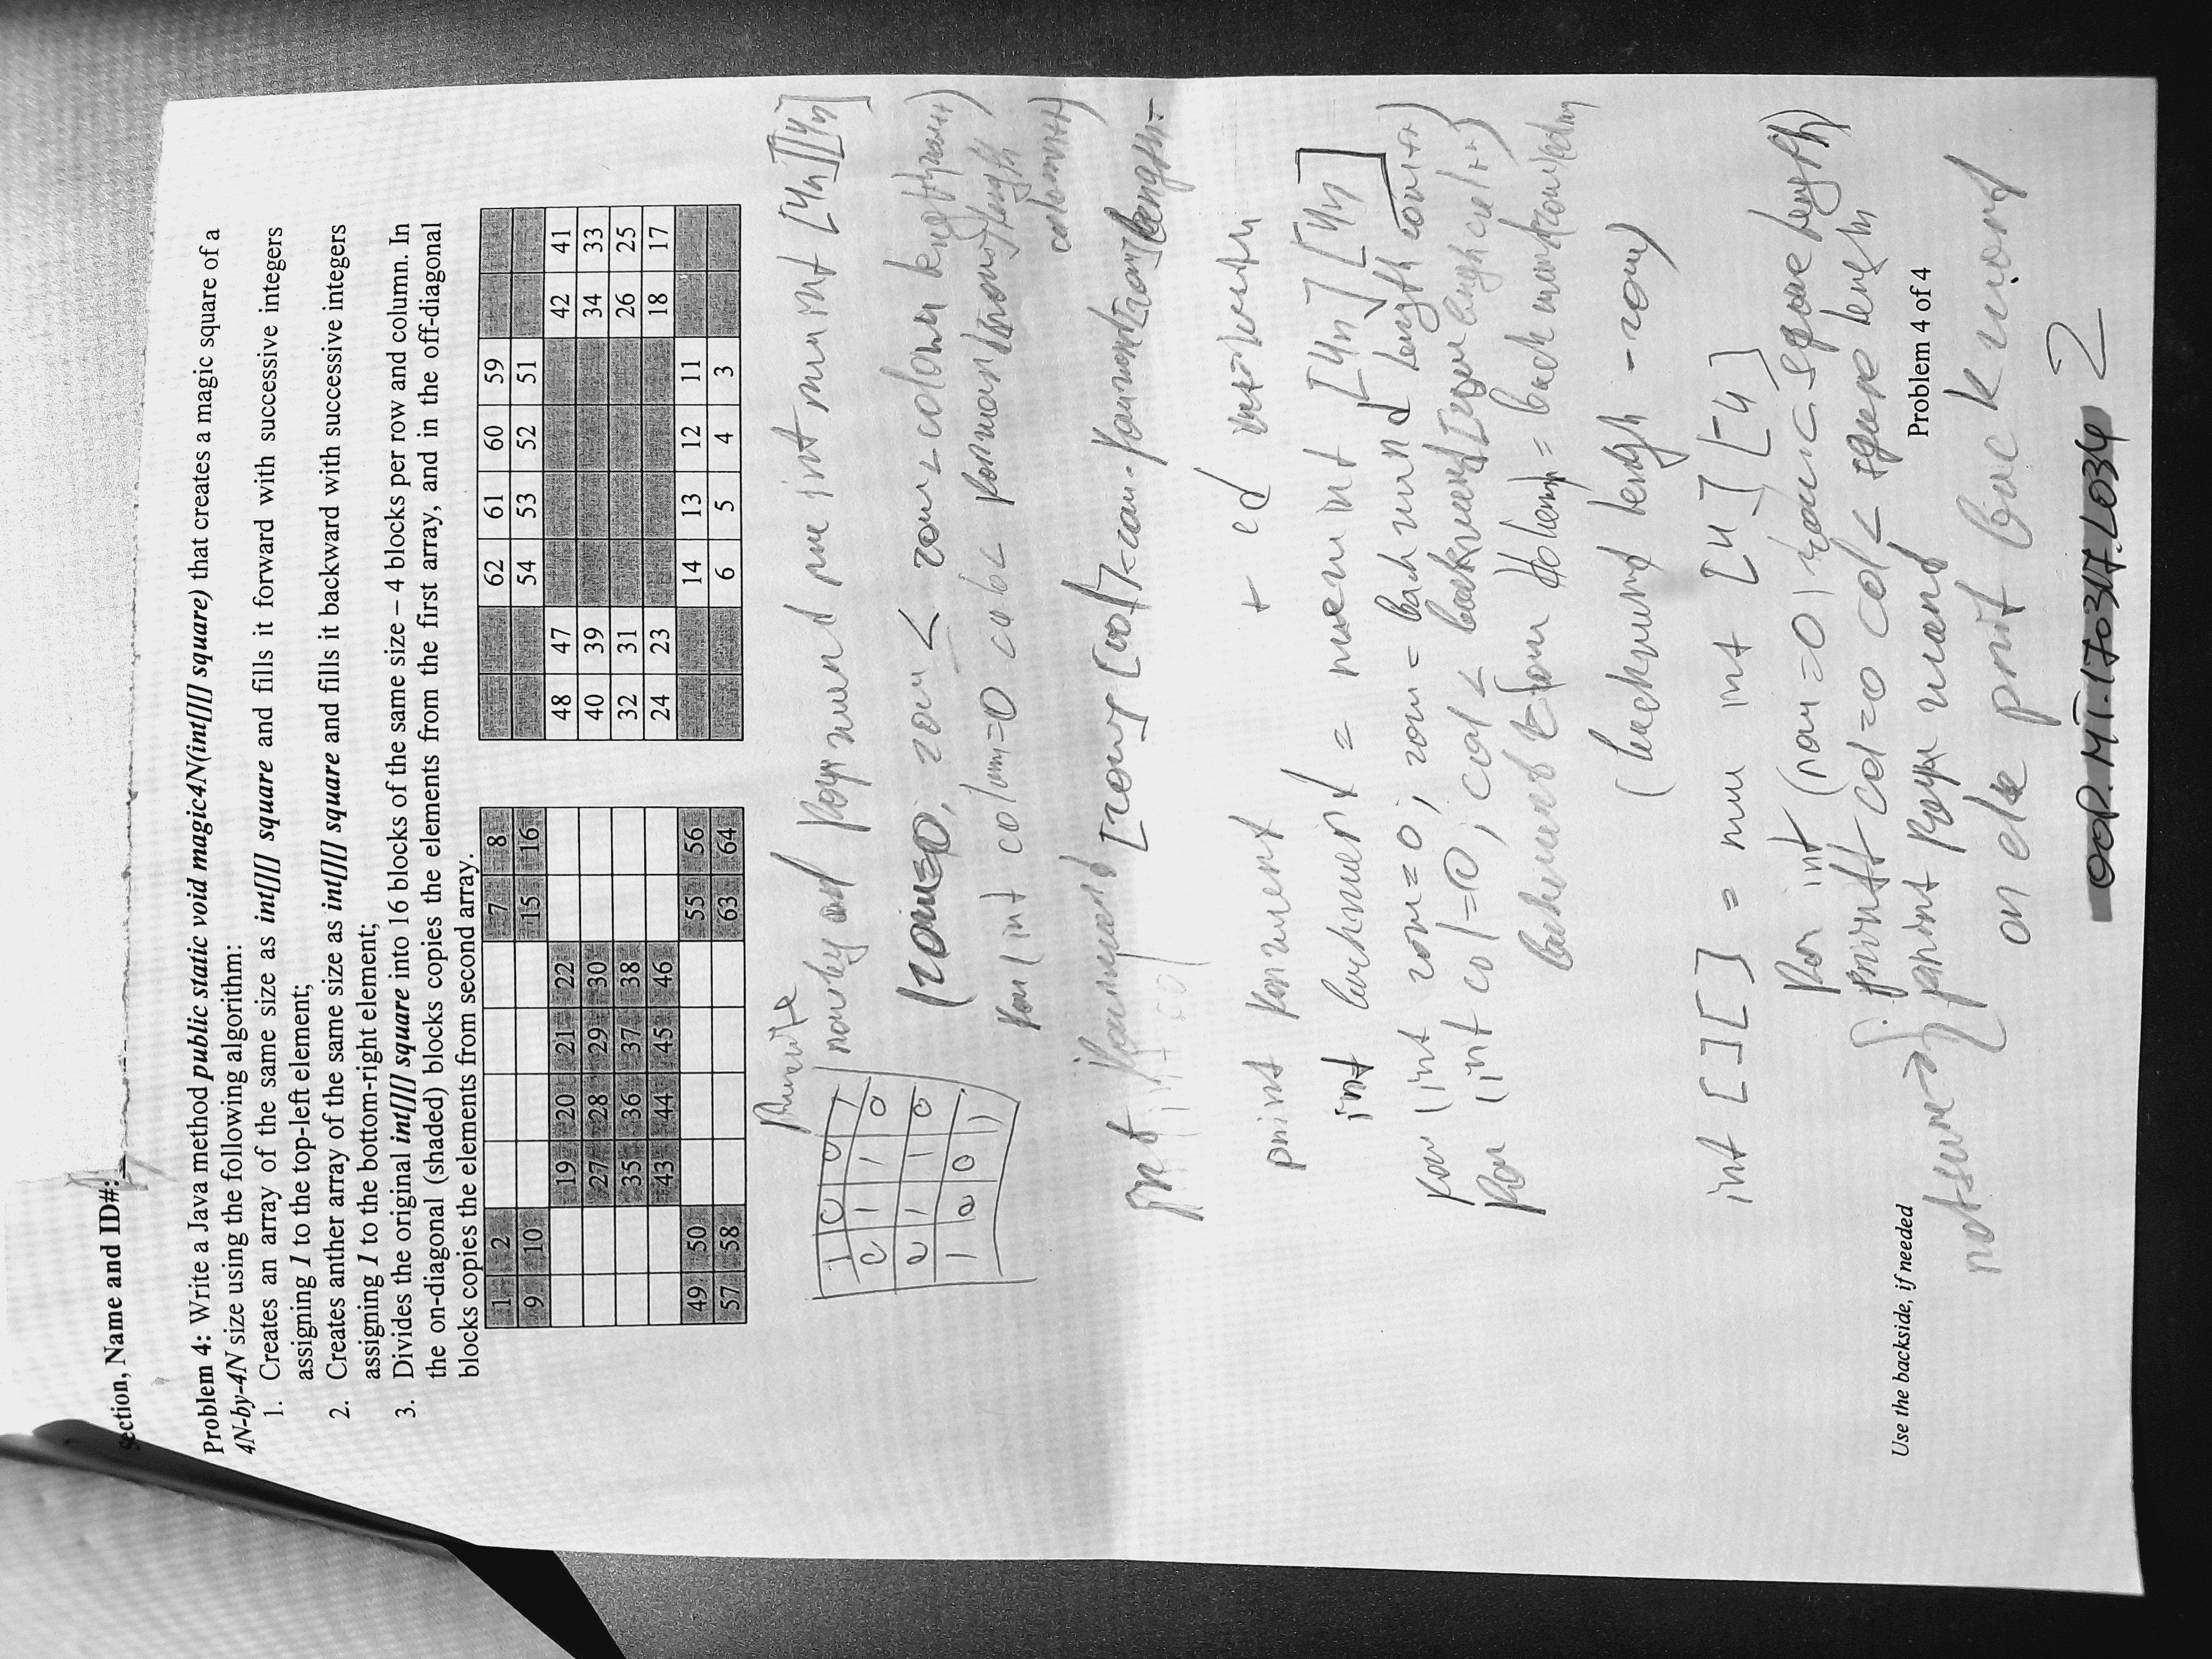 Section, Name and ID#:
Problem 4: Write a Java method public static void magic4N(int[][] square) that creates a magic square of a
4N-by-4N size using the following algorithm:
1. Creates an array of the same size as int[][] square and fills it forward with successive integers
assigning 1 to the top-left element;
2. Creates anther array of the same size as int[][] square and fills it backward with successive integers
assigning 1 to the bottom-right element;
3. Divides the original int[][] square into 16 blocks of the same size – 4 blocks per row and column. In
the on-diagonal (shaded) blocks copies the elements from the first array, and in the off-diagonal
blocks copies the elements from second array.
1 2 7 8
9 10 15 16
19 20 21 22
27 28 29 30
35 36 37 38
43 44 45 46
49 50 55 56
57 58 63 64
62 61 60 59
54 53 52 51
48 47 42 41
40 39 34 33
32 31 26 25
24 23 18 17
14 13 12 11
6 5 4 3
1 0 0 1
0 1 1 0
0 1 1 0
1 0 0 1
int int [4n][4n]
(row=0; row < row < colown length row++)
for (int column=0 col < forward [row] length
column++)
int forward [row] [col] = row . forward [row] length
print forward +
int backward = new int [4n] [4n]
for (int row=0; row = backward length row++)
for (int col=0; col < backward [row length col++)
backward = backward
(backward length - row)
int [][] = new int [4] [4]
for int (row=0) row < square length)
printf col=0 col < square length
not sure → print forward
or else print backward
Use the backside, if needed
Problem 4 of 4
OOP.MT.170317.L034 2